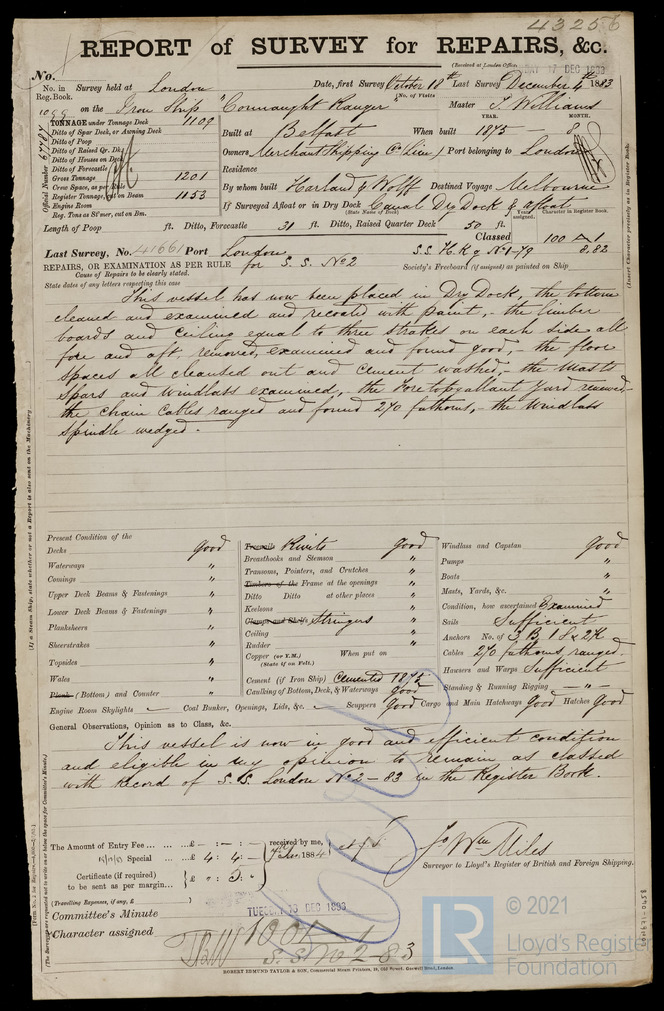 43256
REPORT of SURVEY for REPAIRS, &c.
(Received at London Office
17 DEC 1883
No.
No. in Reg. Book.
Survey held at London Date, first Survey October 18th Last Survey December 4th 1883
(No. of Visits
on the Iron Ship "Connaught Ranger" Master T. Williams
TONNAGE under Tonnage Deck 1109
Ditto of Spar Deck, or Awning Deck
Ditto of Poop
Ditto of Raised Qr. Dk.
Ditto of Houses on Deck
Ditto of Forecastle
Gross Tonnage 1201
Crew Space, as per Rule
Register Tonnage, cut on Beam 1153
Engine Room
Reg. Tons as St'mer, cut on Bm.
Official Number
YEAR. MONTH.
Built at Belfast When built 1875 - 8
Owners Merchant Shipping Co (Lim) Port belonging to London
Residence
By whom built Harland & Wolff Destined Voyage Melbourne
If Surveyed Afloat or in Dry Dock Canal Dry Dock & afloat
(State Name of Dock)
Years assigned. Character in Register Book.
Length of Poop ft. Ditto, Forecastle 31 ft. Ditto, Raised Quarter Deck 50 ft.
Classed 100 A 1
8.82
Last Survey, No. 41661 Port London
S.S. H.K.g No 1-79
REPAIRS, OR EXAMINATION AS PER RULE for S. S. No 2
Society's Freeboard (if assigned) as painted on Ship
Cause of Repairs to be clearly stated.
State dates of any letters respecting this case
This vessel has now been placed in Dry Dock, the bottom
cleaned and examined and recoated with paint, - the limber
boards and ceiling equal to three strakes on each side all
fore and aft, removed, examined and found good, - the floor
spaces all cleansed out and cement washed, - the Masts
spars and windlass examined, the Fore topgallant Yard renewed,
the chain cables ranged and found 270 fathoms, - the Windlass
spindle wedged.
Present Condition of the
Decks Good
Waterways "
Comings "
Upper Deck Beams & Fastenings "
Lower Deck Beams & Fastenings "
Planksheers "
Sheerstrakes "
Topsides "
Wales "
Plank (Bottom) and Counter "
Engine Room Skylights
Treenails Rivets Good
Breasthooks and Stemson "
Transoms, Pointers, and Crutches "
Timbers of the Frame at the openings "
Ditto Ditto at other places "
Keelsons "
Clamps and Shelfs Stringers "
Ceiling "
Rudder "
Copper (or Y.M.) When put on
(State if on Felt.)
Cement (if Iron Ship) Cemented 1875
Caulking of Bottom, Deck, & Waterways good
Coal Bunker, Openings, Lids, &c. Scuppers Good
Windlass and Capstan Good
Pumps "
Boats "
Masts, Yards, &c. "
Condition, how ascertained Examined
Sails Sufficient
Anchors No. of 3 B 1 S & 2 K
Cables 270 fathoms ranged.
Hawsers and Warps Sufficient
Standing & Running Rigging - " -
Cargo and Main Hatchways Good Hatches Good
General Observations, Opinion as to Class, &c.
This vessel is now in good and efficient condition
and eligible in my opinion to remain as classed
with Record of S.S. London No 2 - 83 in the Register Book.
The Amount of Entry Fee ... £ - : - : - received by me,
Special ... £ 4 : 4 : - 1884
Certificate (if required) £ 0 : 5 : -
to be sent as per margin...
(Travelling Expenses, if any, £ )
Jo Wm Miles
Surveyor to Lloyd's Register of British and Foreign Shipping.
Committee's Minute
TUESDAY 18 DEC 1883
Character assigned 100 A 1
S.S. No 2-83
ROBERT EDMUND TAYLOR & SON, Commercial Steam Printers, 19, Old Street, Goswell Road, London
(If a Steam Ship, state whether or not a Report is also sent on the Machinery.
(Insert Character precisely as in Register Book.
(The Surveyors are requested not to write on or below the space for Committee's Minute.)
LR
© 2021
Lloyd's Register
Foundation